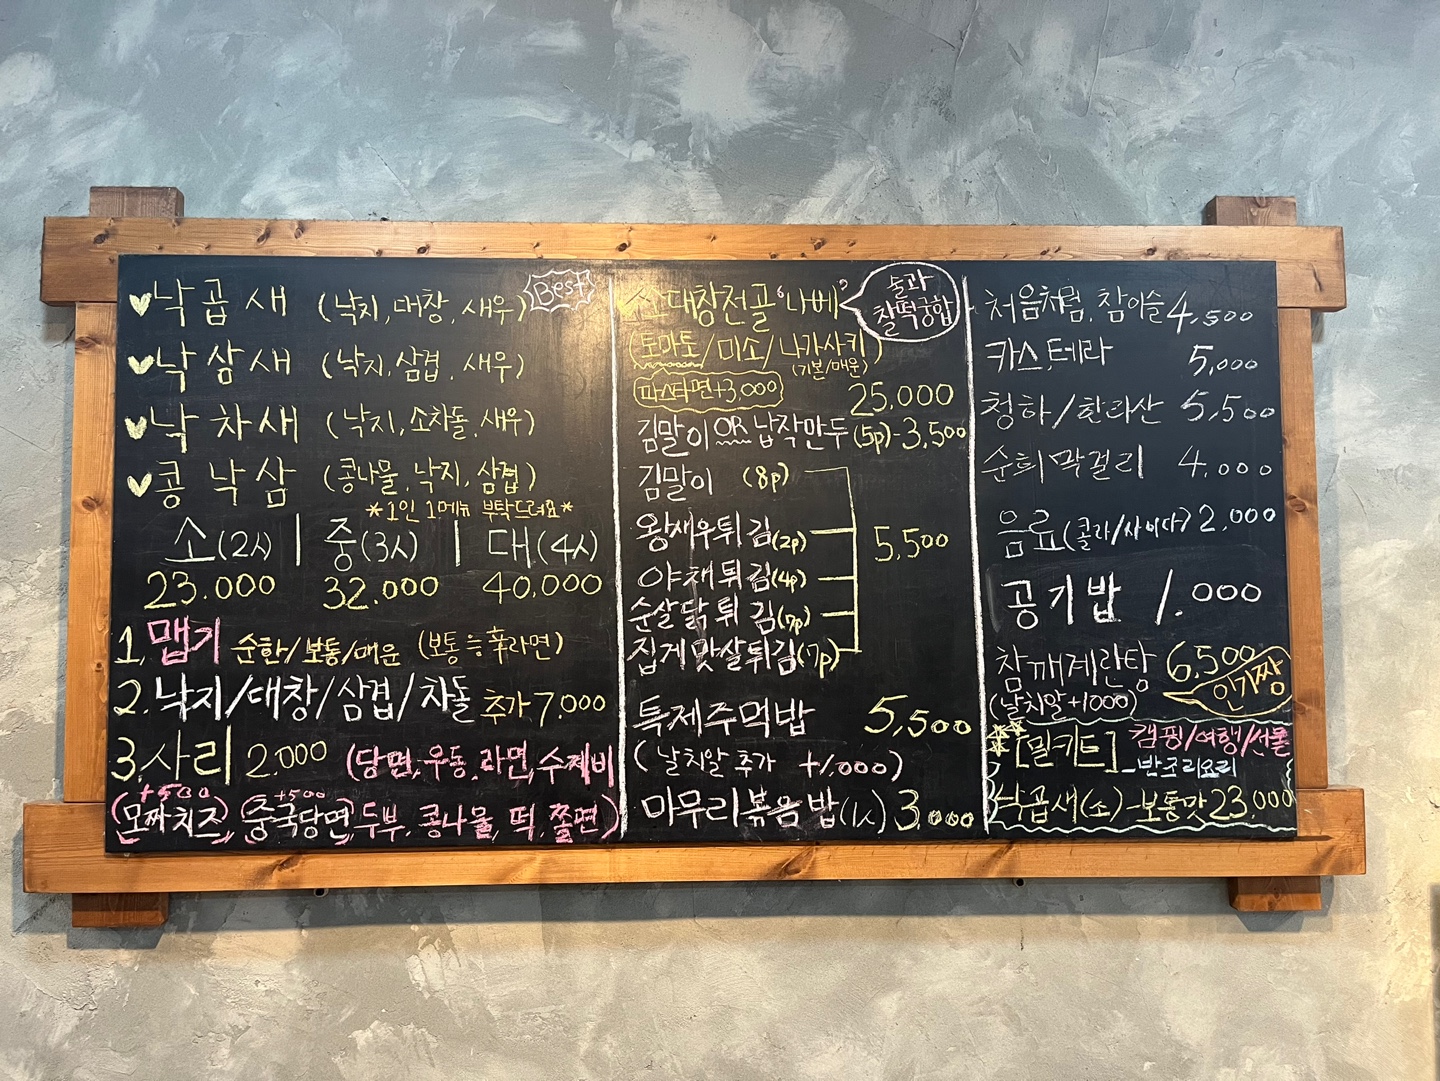 낙곱새 (낙지, 대창, 새우) Best
낙삼새 (낙지, 삼겹, 새우)
낙차새 (낙지, 소차돌, 새우)
콩낙삼 (콩나물, 낙지, 삼겹)
*1인 1메뉴 부탁드려요*
소(2人) | 중(3人) | 대(4人)
23.000 32.000 40.000
1. 맵기 순한/보통/매운 (보통=辛라면)
2. 낙지/대창/삼겹/차돌 추가 7.000
3. 사리 2.000 (당면, 우동, 라면, 수제비
+500 +500
(모짜치즈) (중국당면) 두부, 콩나물, 떡, 쫄면)
소대창전골 '나베'
술과
찰떡궁합
(토마토/미소/나가사키)
(기본/매운)
파스타면+3.000 25.000
김말이 OR 납작만두(5p)-3,500
김말이 (8p)
왕새우튀김(2p) 5,500
야채튀김(4p)
순살닭튀김(7p)
집게맛살튀김(7p)
특제주먹밥 5,500
(날치알 추가 +1.000)
마무리볶음밥(1人) 3.000
처음처럼, 참이슬 4,500
카스, 테라 5,000
청하/한라산 5,500
순희막걸리 4.000
음료(콜라/사이다) 2.000
공기밥 1.000
참깨계란탕 6,500
(날치알+1000) 인기짱
[밀키트] 캠핑/여행/선물
-반조리요리
낙곱새(소)-보통맛 23.000